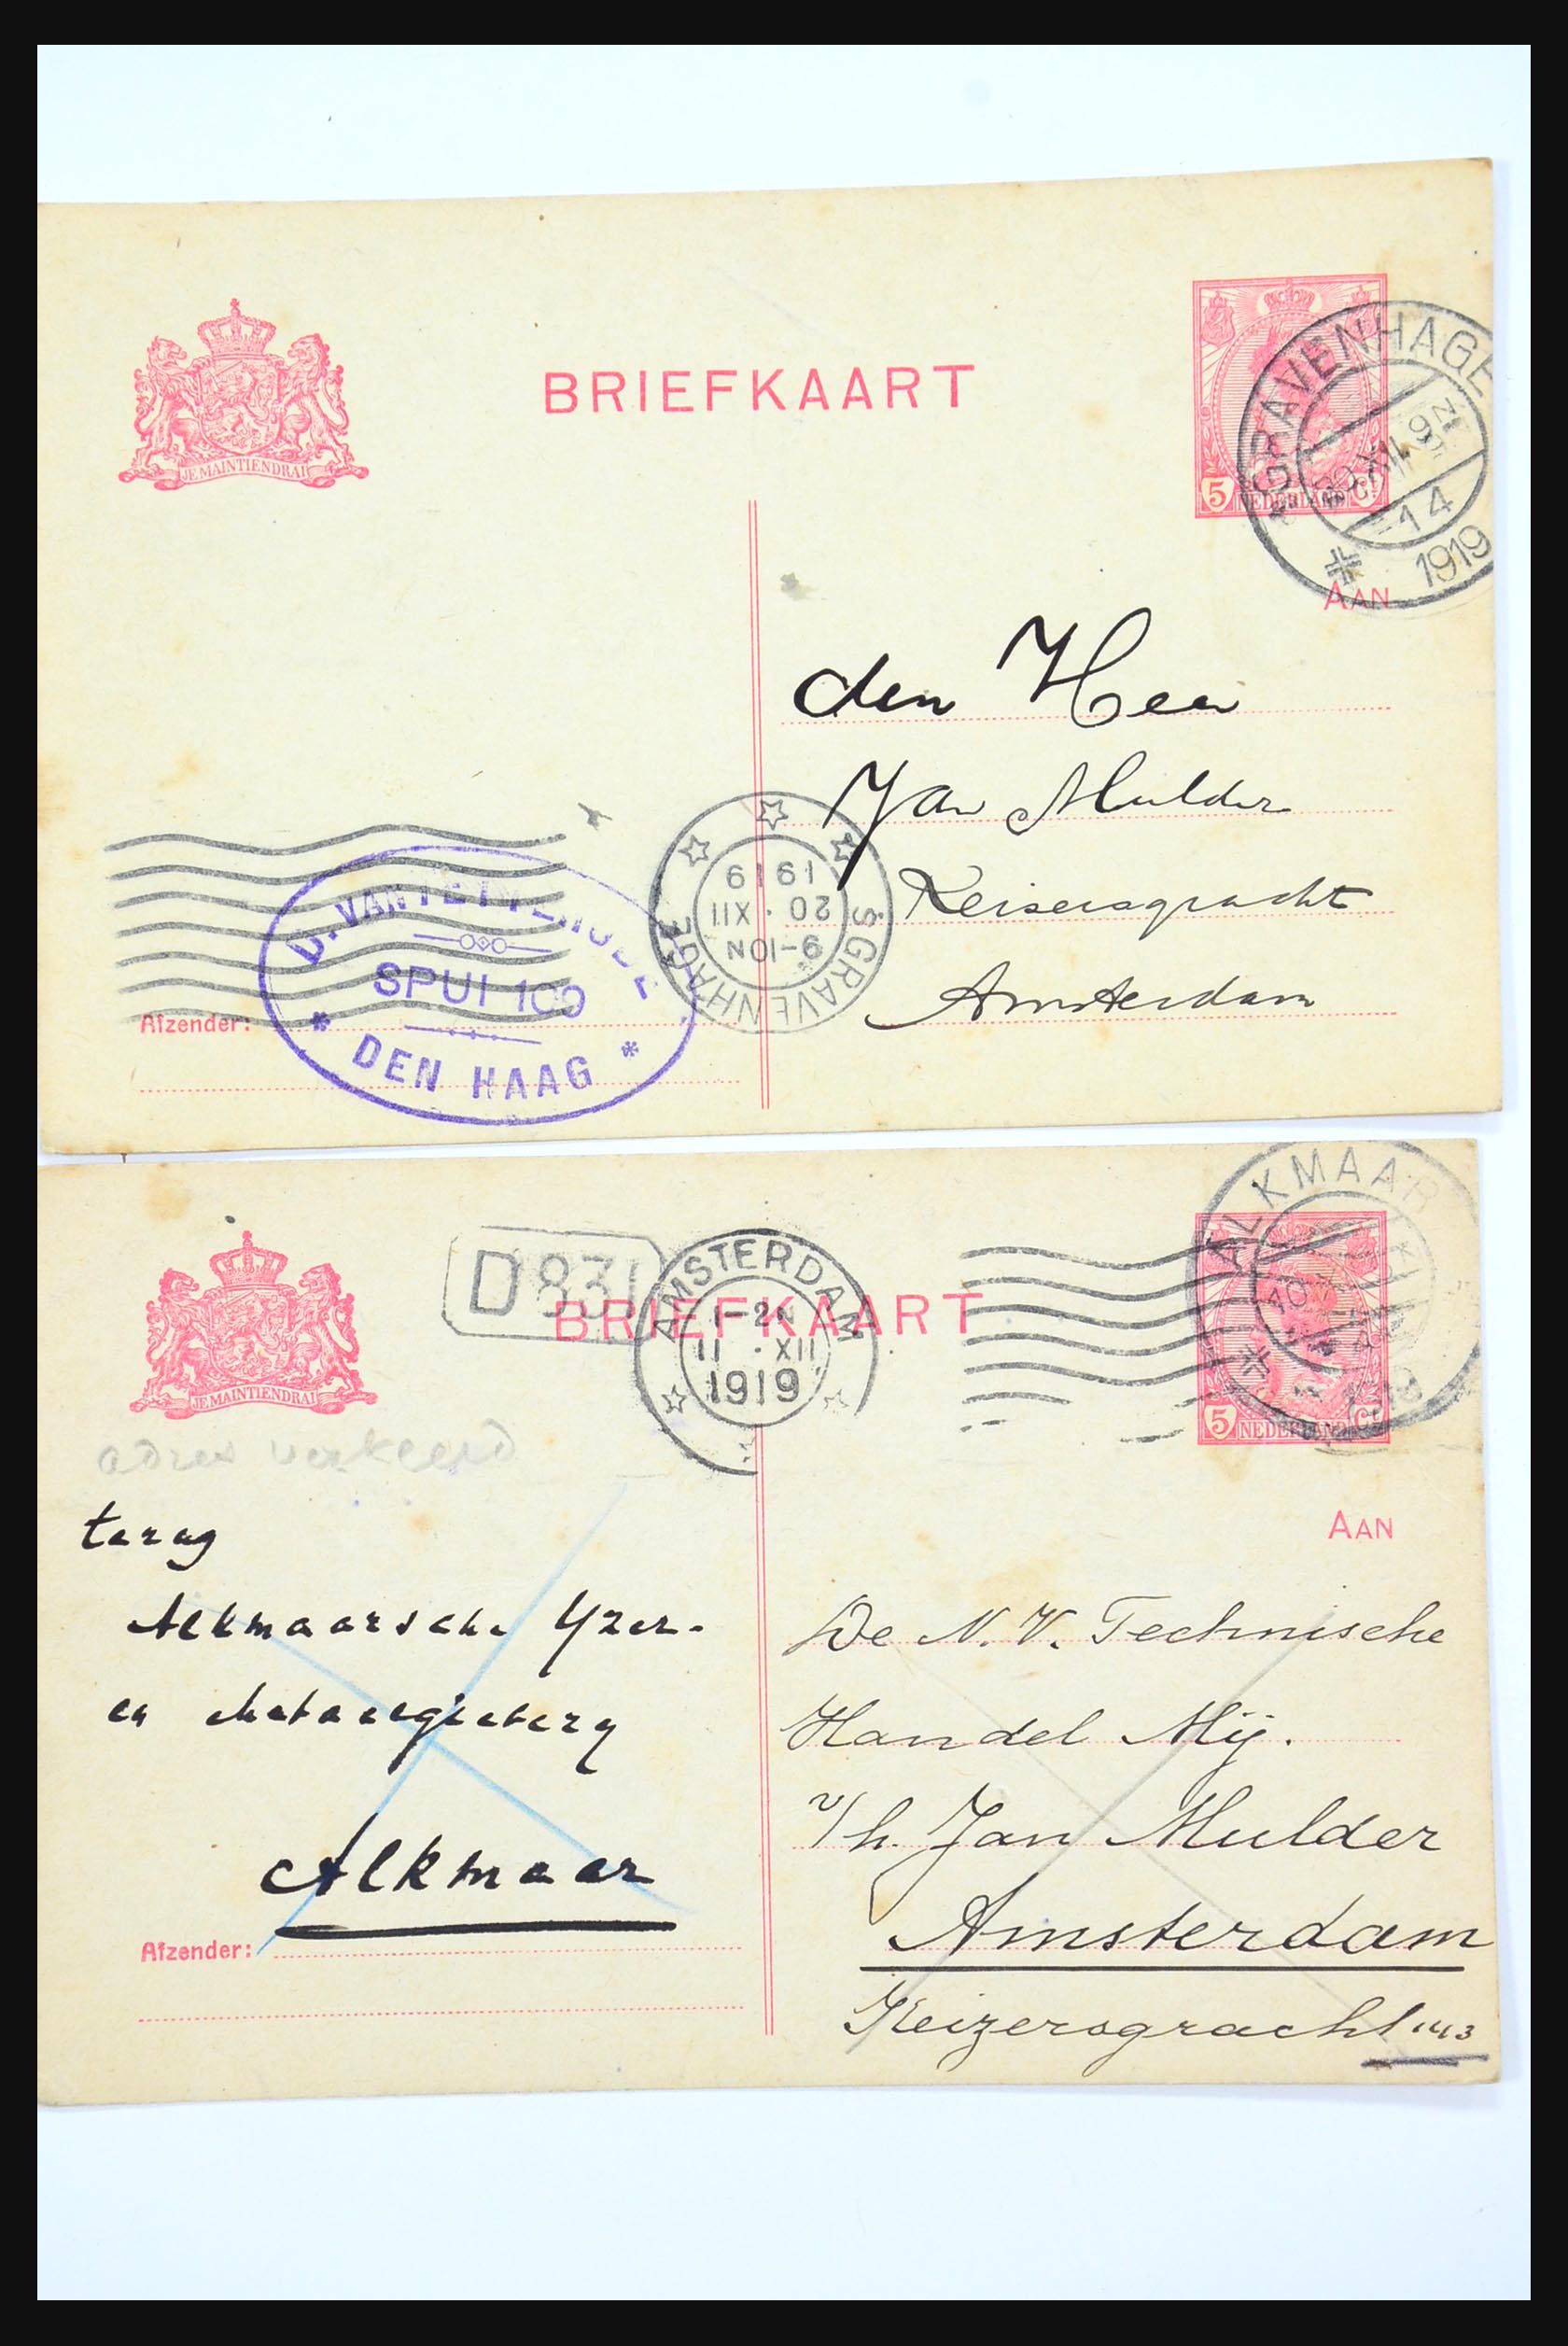 BRIEFKAART
JE MAINTIENDRAI
5 NEDERLAND Ct
GRAVENHAGE
XII 9
-14
1919
AAN
den Heer
Jan Mulder
Keisersgracht
Amsterdam
D. VAN
SPUI 109
DEN HAAG
S GRAVENHAGE
9-10N
20 · XII
1919
Afzender:
BRIEFKAART
JE MAINTIENDRAI
D 831
AMSTERDAM
1-2N
11 · XII
1919
ALKMAAR
5 NEDERLAND Ct
AAN
adres verkeerd
terug
Alkmaarsche Yzer-
en Metaalgietery
Alkmaar
Afzender:
De N. V. Technische
Handel Mij.
v/h. Jan Mulder
Amsterdam
Keizersgracht 143